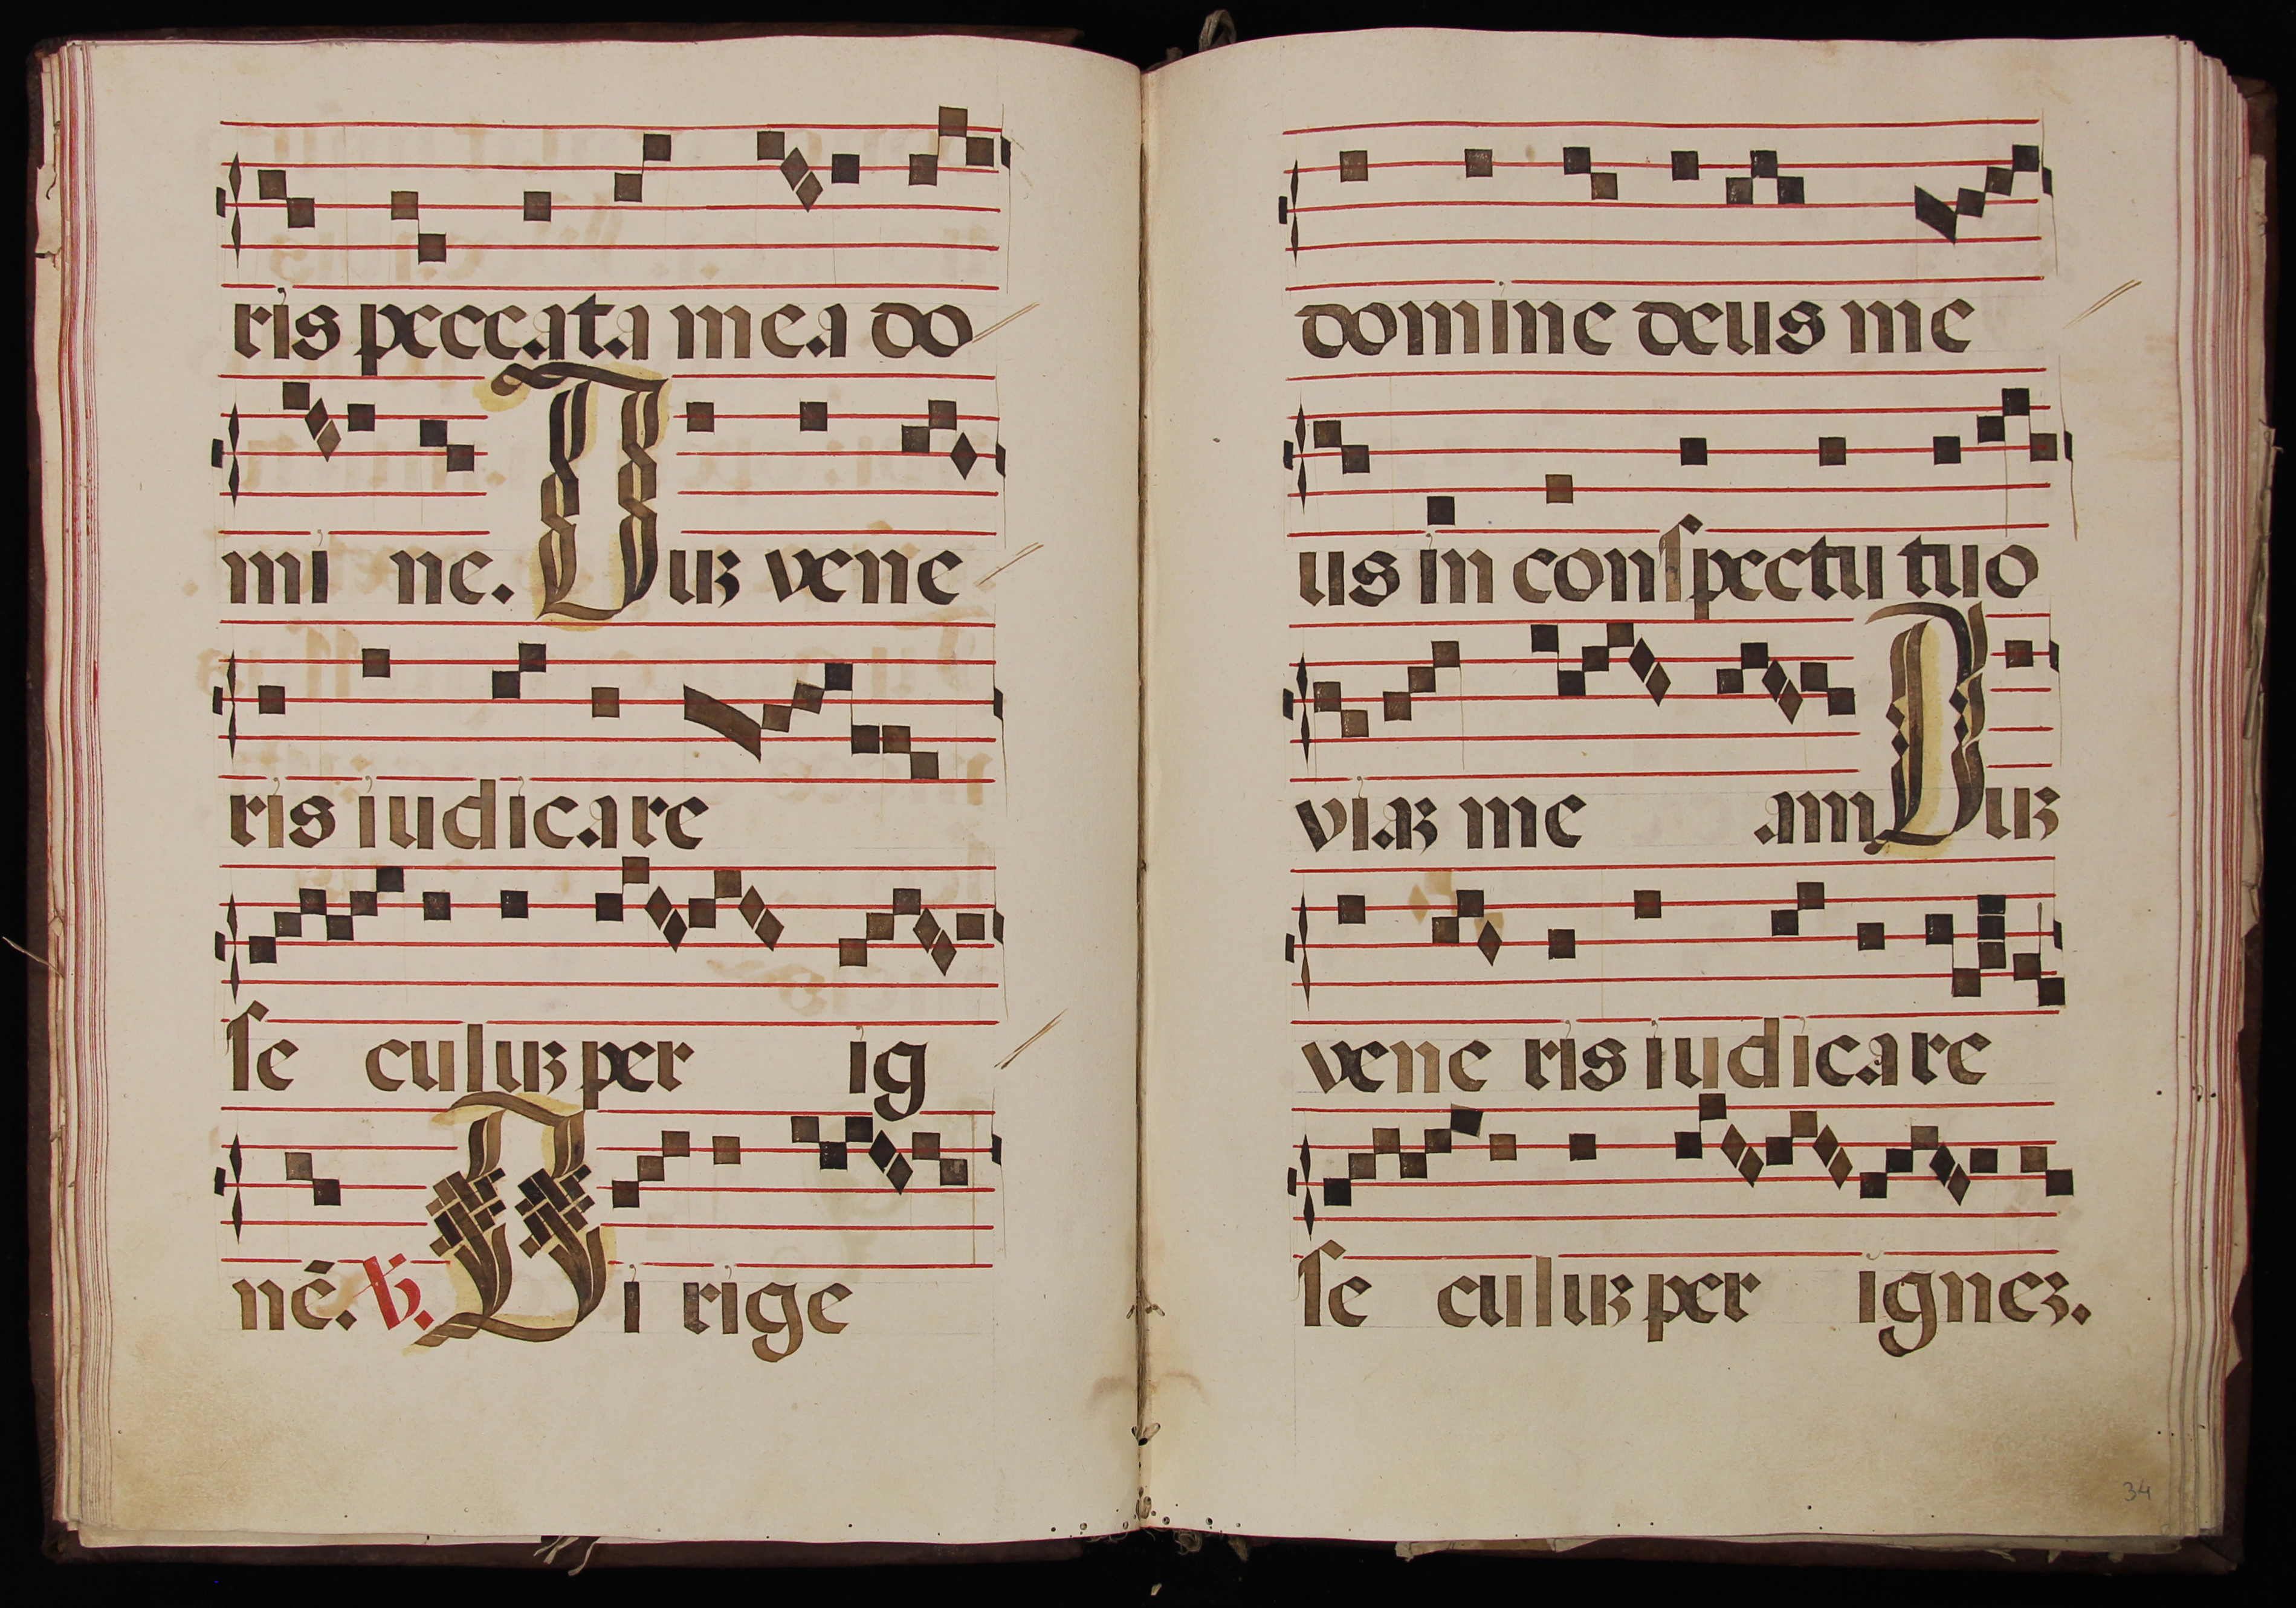 ris peccata mea do
mi ne. Duʒ vene
ris iudicare
ſe culuʒ per ig
nē. ℣. Di rige
domine deus me
us in conſpectu tuo
viaʒ me am Duʒ
vene ris iudicare
ſe culuʒ per igneʒ.
34